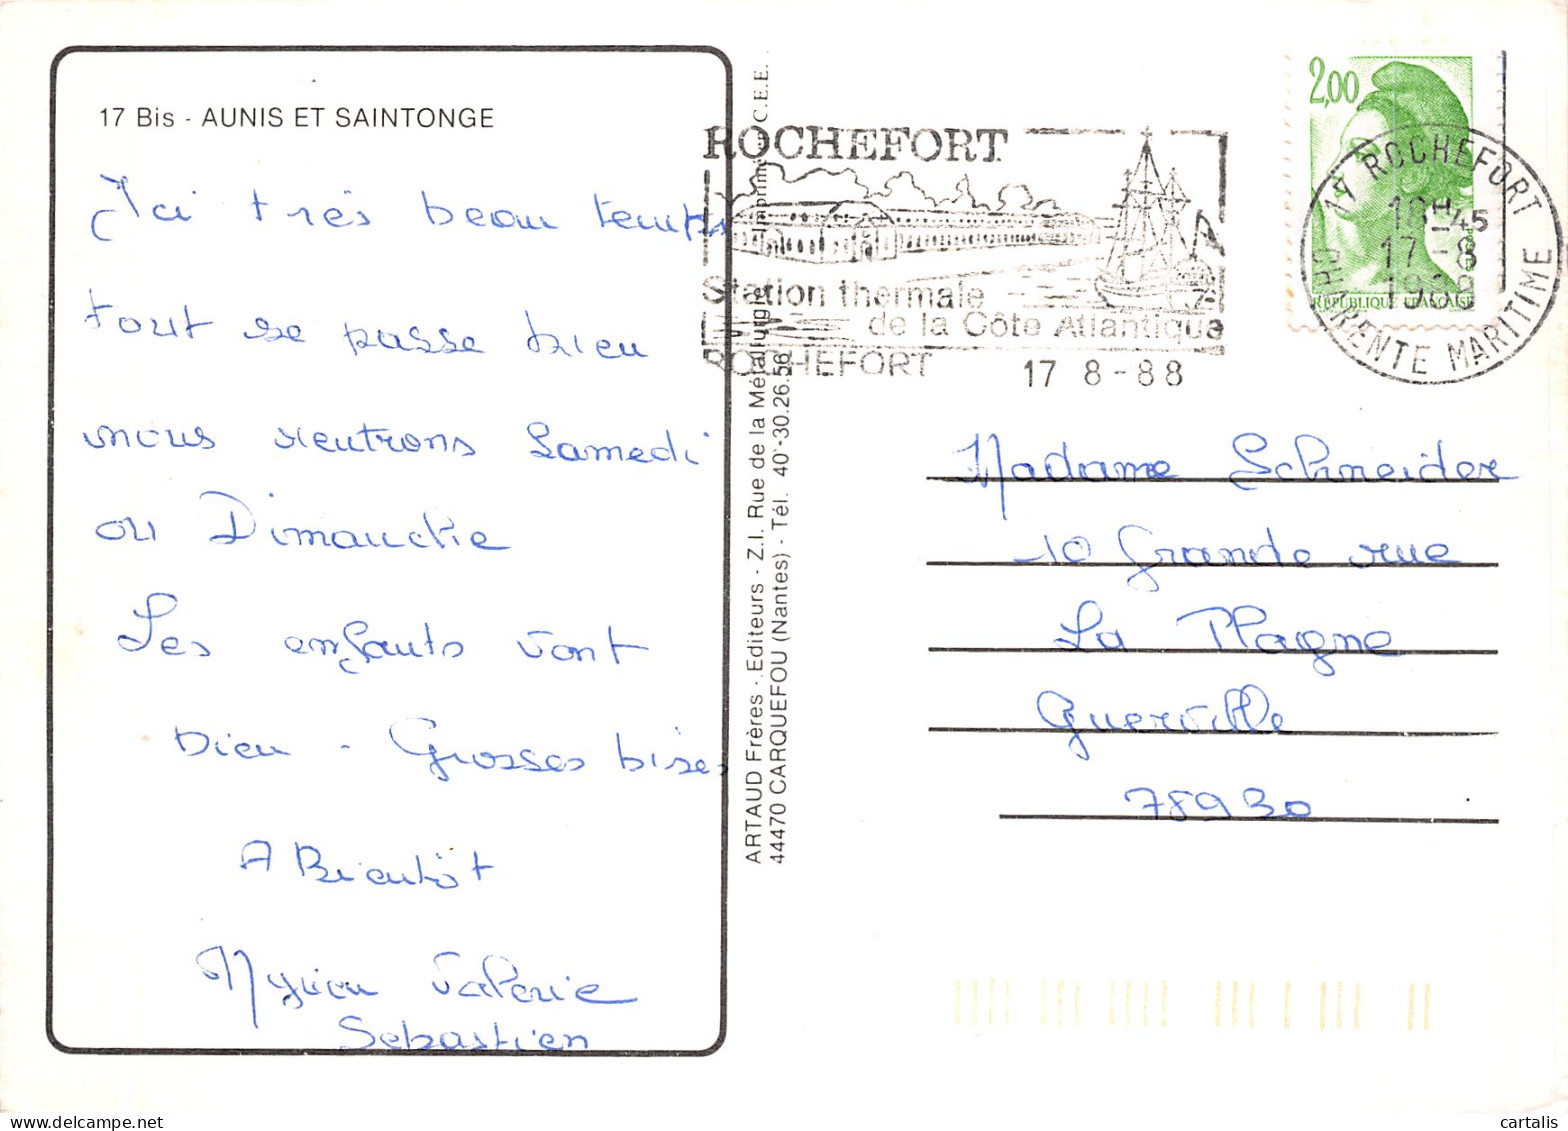 17 Bis - AUNIS ET SAINTONGE
J'ai très beau temps
tout se passe bien
nous rentrons Samedi
ou Dimanche
Les enfants vont
bien - Grosses bises
A Bientôt
Myriem Valerie
Sebastien
ARTAUD Frères - Editeurs - Z.I. Rue de la Métallurgie
44470 CARQUEFOU (Nantes) - Tél. 40-30.26.56
Imprimé C.E.E.
ROCHEFORT
Station thermale
de la Côte Atlantique
ROCHEFORT
17 8-88
2,00
REPUBLIQUE FRANÇAISE
17 ROCHEFORT
16H45
17-8
1988
CHARENTE MARITIME
Madame Schneider
10 Grande rue
La Plagne
Guerville
78930
www.delcampe.net
cartalis